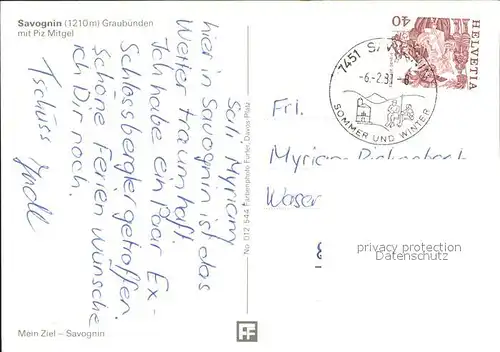 Savognin (1210m) Graubünden
mit Piz Mitgel
Sali Myriam
hier in Savognin ist das
Wetter traumhaft.
Ich habe ein Paar Ex-
Schlossbergler getroffen.
Schöne Ferien wünsche
ich Dir noch.
Tschüss
No. 012 544 Farbenphoto Furter, Davos-Platz
HELVETIA
40
7451 SAVOGNIN
-6.-2.83.-6
SOMMER UND WINTER
Frl.
Myriam
Waser
privacy protection
Datenschutz
Mein Ziel – Savognin